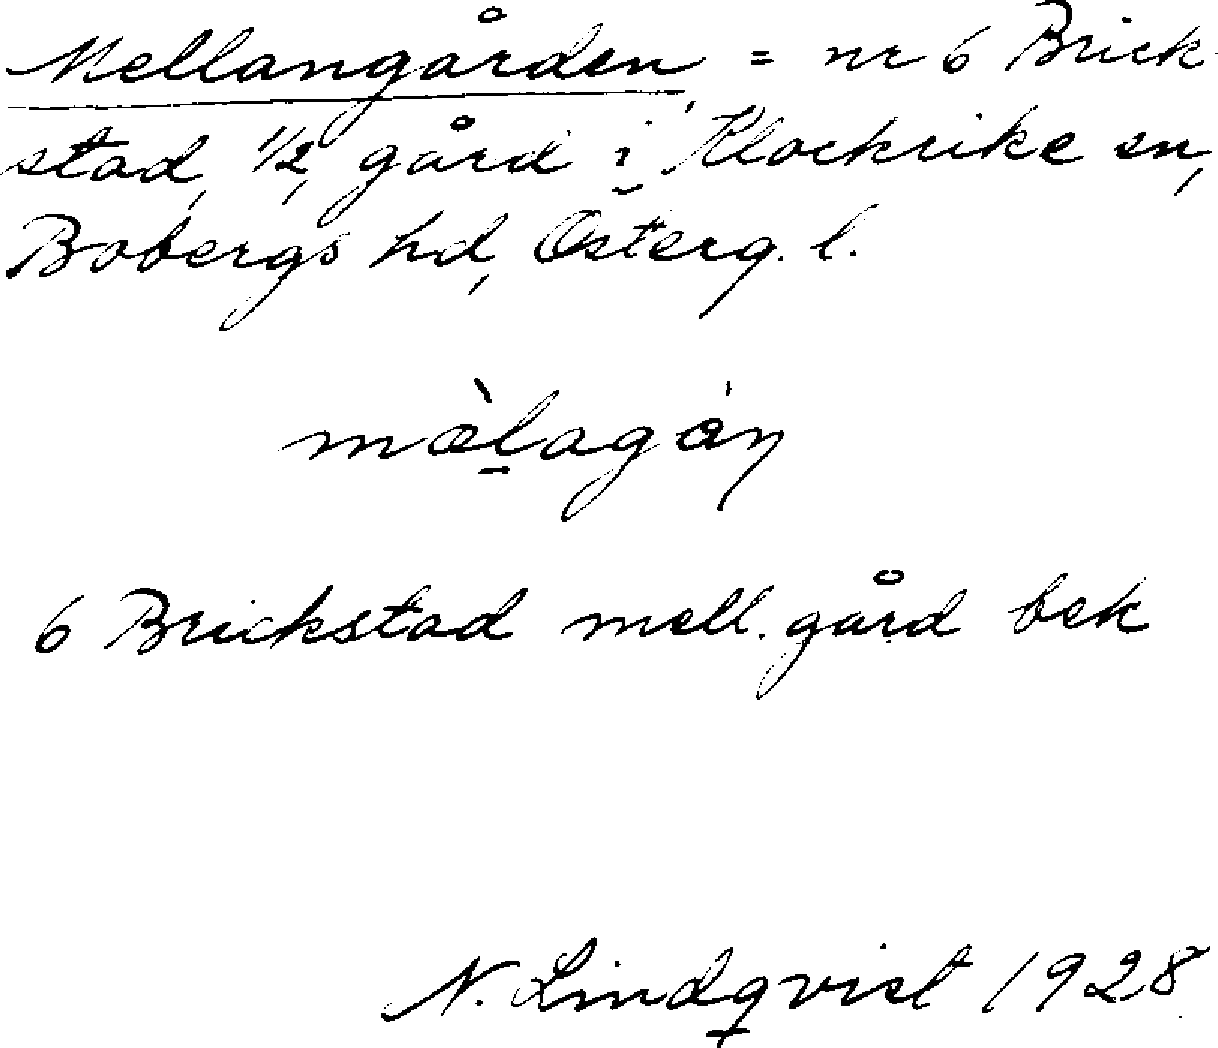 Mellangården = nr 6 Brick-
stad, 1/2, gård i Klockrike sn,
Bobergs hd, Österg. l.
6 Brickstad mell. gård bek
N. Lindqvist 1928